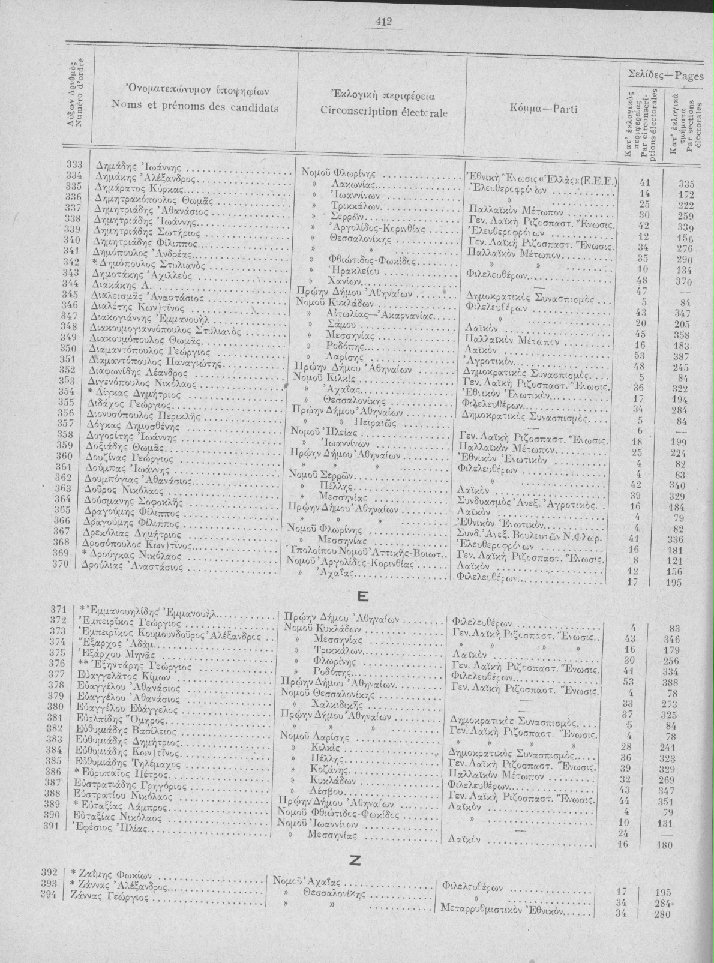 412
Αὔξων ἀριθμὸς
Numéro d'ordre
Ὀνοματεπώνυμον ὑποψηφίων
Noms et prénoms des candidats
Ἐκλογικὴ περιφέρεια
Circonscription électorale
Κόμμα—Parti
Σελίδες—Pages
Κατ' ἐκλογικὰς περιφερείας
Par circonscriptions électorales
Κατ' ἐκλογικὰ τμήματα
Par sections électorales
333 Δημάδης Ἰωάννης Νομοῦ Φλωρίνης Ἐθνικὴ Ἕνωσις «Ἑλλάς» (Ε.Ε.Ε.) 41 335
334 Δημάκης Ἀλέξανδρος » Λακωνίας Ἐλευθεροφρόνων 14 172
335 Δημάρατος Κύρκας » Ἰωαννίνων » 25 222
336 Δημητρακόπουλος Θωμᾶς » Τρικκάλων Παλλαϊκὸν Μέτωπον 30 259
337 Δημητριάδης Ἀθανάσιος » Σερρῶν Γεν. Λαϊκὴ Ριζοσπαστ. Ἕνωσις 42 339
338 Δημητριάδης Ἰωάννης » Ἀργολίδος-Κορινθίας Ἐλευθεροφρόνων 12 156
339 Δημητριάδης Σωτήριος » Θεσσαλονίκης Γεν. Λαϊκὴ Ριζοσπαστ. Ἕνωσις 34 276
340 Δημητριάδης Φίλιππος » » Παλλαϊκὸν Μέτωπον 35 290
341 Δημόπουλος Ἀνδρέας » Φθιώτιδος-Φωκίδος » » 10 134
342 * Δημόπουλος Στυλιανὸς » Ἡρακλείου Φιλελευθέρων 48 370
343 Δημοτάκης Ἀχιλλεὺς » Χανίων — 47
344 Διακάκης Α. Πρώην Δήμου Ἀθηναίων Δημοκρατικὸς Συνασπισμὸς 5 84
345 Διαλεισμᾶς Ἀναστάσιος Νομοῦ Κυκλάδων Φιλελευθέρων 43 347
346 Διαλέτης Κων)τῖνος » Αἰτωλίας—Ἀκαρνανίας » 20 205
347 Διακογιάννης Ἐμμανουὴλ » Σάμου Λαϊκὸν 45 358
348 Διακουμογιαννόπουλος Στυλιανὸς » Μεσσηνίας Παλλαϊκὸν Μέτωπον 16 183
349 Διακουμόπουλος Θωμᾶς » Ροδόπης Λαϊκὸν 53 387
350 Διαμαντόπουλος Γεώργιος » Λαρίσης Ἀγροτικὸν 48 245
351 Διαμαντόπουλος Παναγιώτης Πρώην Δήμου Ἀθηναίων Δημοκρατικὸς Συνασπισμὸς 5 84
352 Διαφωνίδης Λέανδρος Νομοῦ Κιλκὶς Γεν. Λαϊκὴ Ριζοσπαστ. Ἕνωσις 36 322
353 Διγενόπουλος Νικόλαος » Ἀχαΐας Ἐθνικὸν Ἑνωτικὸν 17 194
354 * Δίγκας Δημήτριος » Θεσσαλονίκης Φιλελευθέρων 34 284
355 Διδάχος Γεώργιος Πρώην Δήμου Ἀθηναίων Δημοκρατικὸς Συνασπισμὸς 5 84
356 Διονυσόπουλος Περικλῆς » » Πειραιῶς — 6 —
357 Δόγκας Δημοσθένης Νομοῦ Ἠλείας Γεν. Λαϊκὴ Ριζοσπαστ. Ἕνωσις 18 190
358 Δογορίτης Ἰωάννης » Ἰωαννίνων Παλλαϊκὸν Μέτωπον 25 224
359 Δοξιάδης Θωμᾶς Πρώην Δήμου Ἀθηναίων Ἐθνικὸν Ἑνωτικὸν 4 82
360 Δουζίνας Γεώργιος » » Φιλελευθέρων 4 63
361 Δούμπας Ἰωάννης Νομοῦ Σερρῶν » 42 340
362 Δουμπόγιας Ἀθανάσιος » Πέλλης Λαϊκὸν 39 329
363 Δοῦρος Νικόλαος » Μεσσηνίας Συνδυασμὸς Ἀνεξ. Ἀγροτικὸς 16 184
364 Δούσμανης Σοφοκλῆς Πρώην Δήμου Ἀθηναίων Λαϊκὸν 4 79
365 Δραγούμης Φίλιππος » » » Ἐθνικὸν Ἑνωτικὸν 4 82
366 Δραγούμης Φίλιππος Νομοῦ Φλωρίνης Συνδ. Ἀνεξ. Βουλευτῶν Ν. Φλωρ. 41 336
367 Δρεκόλιας Δημήτριος » Μεσσηνίας Ἐλευθεροφρόνων 16 181
368 Δροσόπουλος Κων)τῖνος Ὑπολοίπου Νομοῦ Ἀττικῆς-Βοιωτ. Γεν. Λαϊκὴ Ριζοσπαστ. Ἕνωσις 8 121
369 * Δρούγκας Νικόλαος Νομοῦ Ἀργολίδος-Κορινθίας Λαϊκὸν 12 156
370 Δρούλιας Ἀναστάσιος » Ἀχαΐας Φιλελευθέρων 17 195
Ε
371 * Ἐμμανουηλίδης Ἐμμανουὴλ Πρώην Δήμου Ἀθηναίων Φιλελευθέρων 4 83
372 Ἐμπειρίκος Γεώργιος Νομοῦ Κυκλάδων Γεν. Λαϊκὴ Ριζοσπαστ. Ἕνωσις 43 346
373 Ἐμπειρίκος Κουμουνδοῦρος Ἀλέξανδρος » Μεσσηνίας » » » 16 179
374 Ἔξαρχος Ἀδὰμ » Τρικκάλων Λαϊκὸν 30 256
375 Ἐξάρχου Μηνᾶς » Φλωρίνης Γεν. Λαϊκὴ Ριζοσπαστ. Ἕνωσις 41 334
376 ** Ἐξηντάρης Γεώργιος » Ροδόπης Φιλελευθέρων 53 388
377 Εὐαγγελάτος Κίμων Πρώην Δήμου Ἀθηναίων Γεν. Λαϊκὴ Ριζοσπαστ. Ἕνωσις 4 78
378 Εὐαγγέλου Ἀθανάσιος Νομοῦ Θεσσαλονίκης — 33 273
379 Εὐαγγέλου Ἀθανάσιος » Χαλκιδικῆς — 37 325
380 Εὐαγγέλου Εὐάγγελος Πρώην Δήμου Ἀθηναίων Δημοκρατικὸς Συνασπισμὸς 5 84
381 Εὐελπίδης Ὅμηρος » » » Γεν. Λαϊκὴ Ριζοσπαστ. Ἕνωσις 4 78
382 Εὐθυμιάδης Βασίλειος Νομοῦ Λαρίσης » » » 28 241
383 Εὐθυμιάδης Δημήτριος » Κιλκὶς Δημοκρατικὸς Συνασπισμὸς 36 323
384 Εὐθυμιάδης Κων)τῖνος » Πέλλης Γεν. Λαϊκὴ Ριζοσπαστ. Ἕνωσις 39 329
385 Εὐθυμιάδης Τηλέμαχος » Κοζάνης Παλλαϊκὸν Μέτωπον 32 269
386 * Εὐριπαῖος Πέτρος » Κυκλάδων Φιλελευθέρων 43 347
387 Εὐστρατιάδης Γρηγόριος » Λέσβου Γεν. Λαϊκὴ Ριζοσπαστ. Ἕνωσις 44 351
388 Εὐστρατίου Νικόλαος Πρώην Δήμου Ἀθηναίων Λαϊκὸν 4 79
389 * Εὐταξίας Λάμπρος Νομοῦ Φθιώτιδος-Φωκίδος » 10 131
390 Εὐταξίας Νικόλαος Νομοῦ Ἰωαννίνων — 24 —
391 Ἐφέσιος Ἠλίας » Μεσσηνίας Λαϊκὸν 16 180
Ζ
392 * Ζαΐμης Φωκίων Νομοῦ Ἀχαΐας Φιλελευθέρων 17 195
393 * Ζάννας Ἀλέξανδρος » Θεσσαλονίκης » 34 284
394 Ζάννας Γεώργιος » » Μεταρρυθμιστικὸν Ἐθνικὸν 34 280